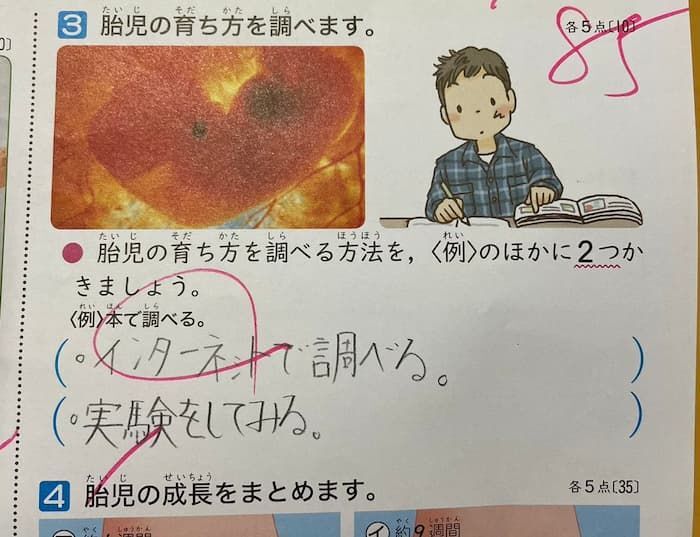 3 胎児の育ち方を調べます。 各5点〔10〕
85
● 胎児の育ち方を調べる方法を，〈例〉のほかに2つか
きましょう。
〈例〉本で調べる。
(。インターネットで調べる。)
(。実験をしてみる。)
4 胎児の成長をまとめます。 各5点〔35〕
イ 約9週間